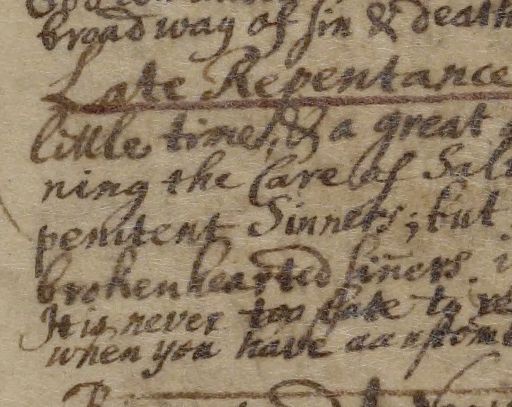 broad way of sin & death
Late Repentance
little time, & a great
ning the Care of Sal
penitent Sinners; but
brokenhearted siñers.
It is never too late to re
when you have accustom